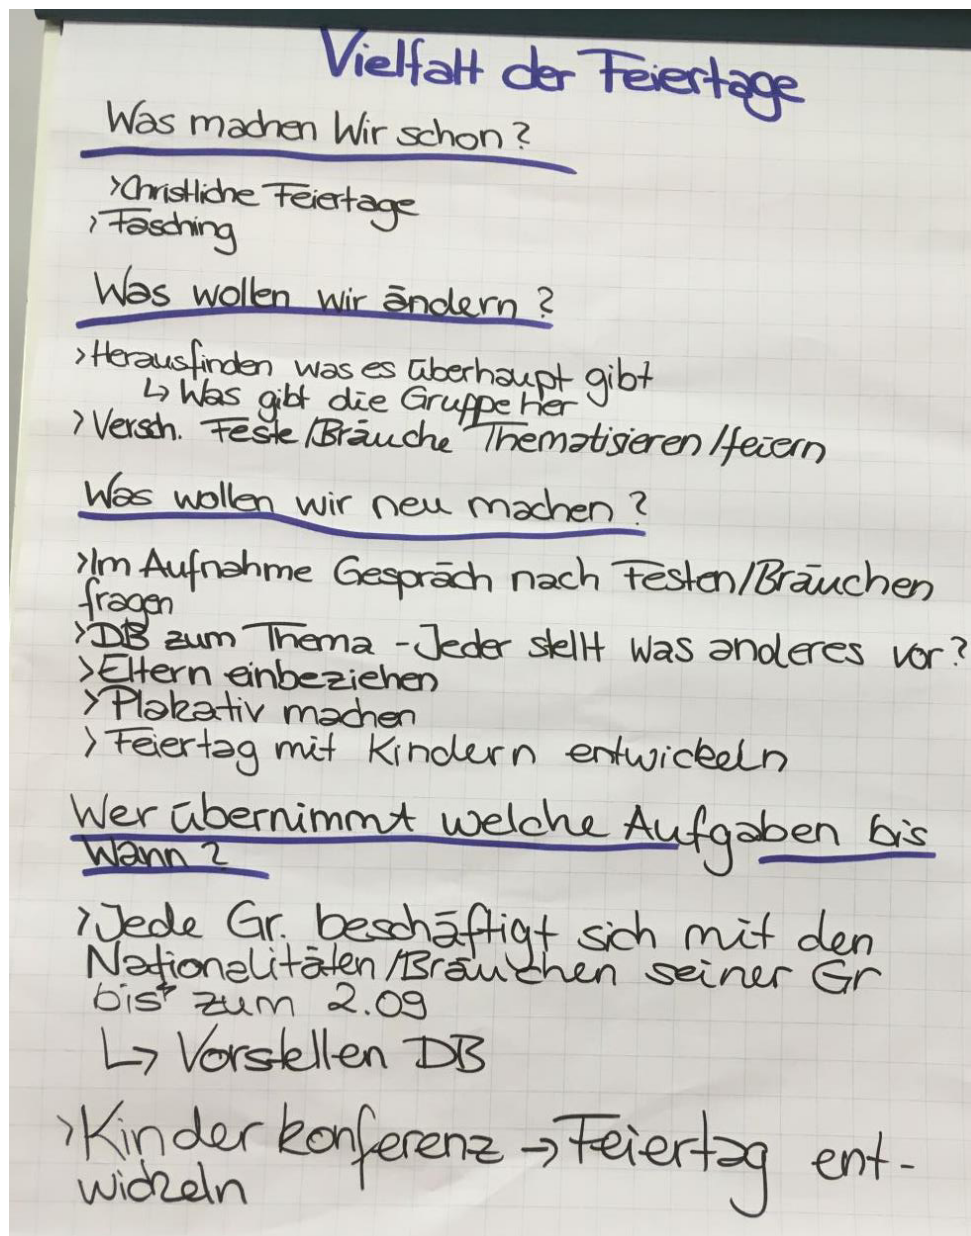 Vielfalt der Feiertage
Was machen Wir schon?
>Christliche Feiertage
> Fasching
Was wollen wir ändern?
>Herausfinden was es überhaupt gibt
↳ Was gibt die Gruppe her
> Versch. Feste/Bräuche Thematisieren/feiern
Was wollen wir neu machen?
>Im Aufnahme Gespräch nach Festen/Bräuchen
fragen
>DB zum Thema - Jeder stellt was anderes vor?
>Eltern einbeziehen
>Plakativ machen
> Feiertag mit Kindern entwickeln
Wer übernimmt welche Aufgaben bis
Wann?
>Jede Gr. beschäftigt sich mit den
Nationalitäten/Bräuchen seiner Gr
bis zum 2.09
↳ Vorstellen DB
>Kinderkonferenz → Feiertag ent-
wickeln